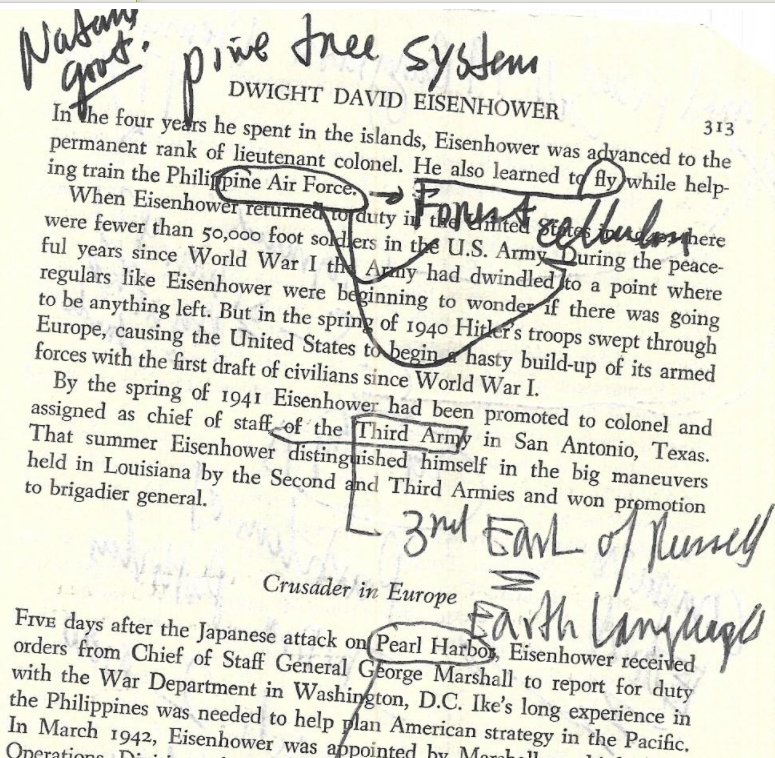 Nature
govt.
pine tree system
DWIGHT DAVID EISENHOWER
313
In the four years he spent in the islands, Eisenhower was advanced to the
permanent rank of lieutenant colonel. He also learned to fly while help-
ing train the Philippine Air Force.
Forest
When Eisenhower returned to duty in the United States there
were fewer than 50,000 foot soldiers in the U.S. Army. During the peace-
ful years since World War I the Army had dwindled to a point where
regulars like Eisenhower were beginning to wonder if there was going
to be anything left. But in the spring of 1940 Hitler's troops swept through
Europe, causing the United States to begin a hasty build-up of its armed
forces with the first draft of civilians since World War I.
By the spring of 1941 Eisenhower had been promoted to colonel and
assigned as chief of staff of the Third Army in San Antonio, Texas.
That summer Eisenhower distinguished himself in the big maneuvers
held in Louisiana by the Second and Third Armies and won promotion
to brigadier general.
3rd Earl of Russell
Crusader in Europe
Earth Language
FIVE days after the Japanese attack on Pearl Harbor, Eisenhower received
orders from Chief of Staff General George Marshall to report for duty
with the War Department in Washington, D.C. Ike's long experience in
the Philippines was needed to help plan American strategy in the Pacific.
In March 1942, Eisenhower was appointed by
Operations